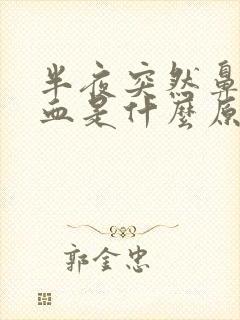 半夜突然鼻
血是什麼原
郭金忠